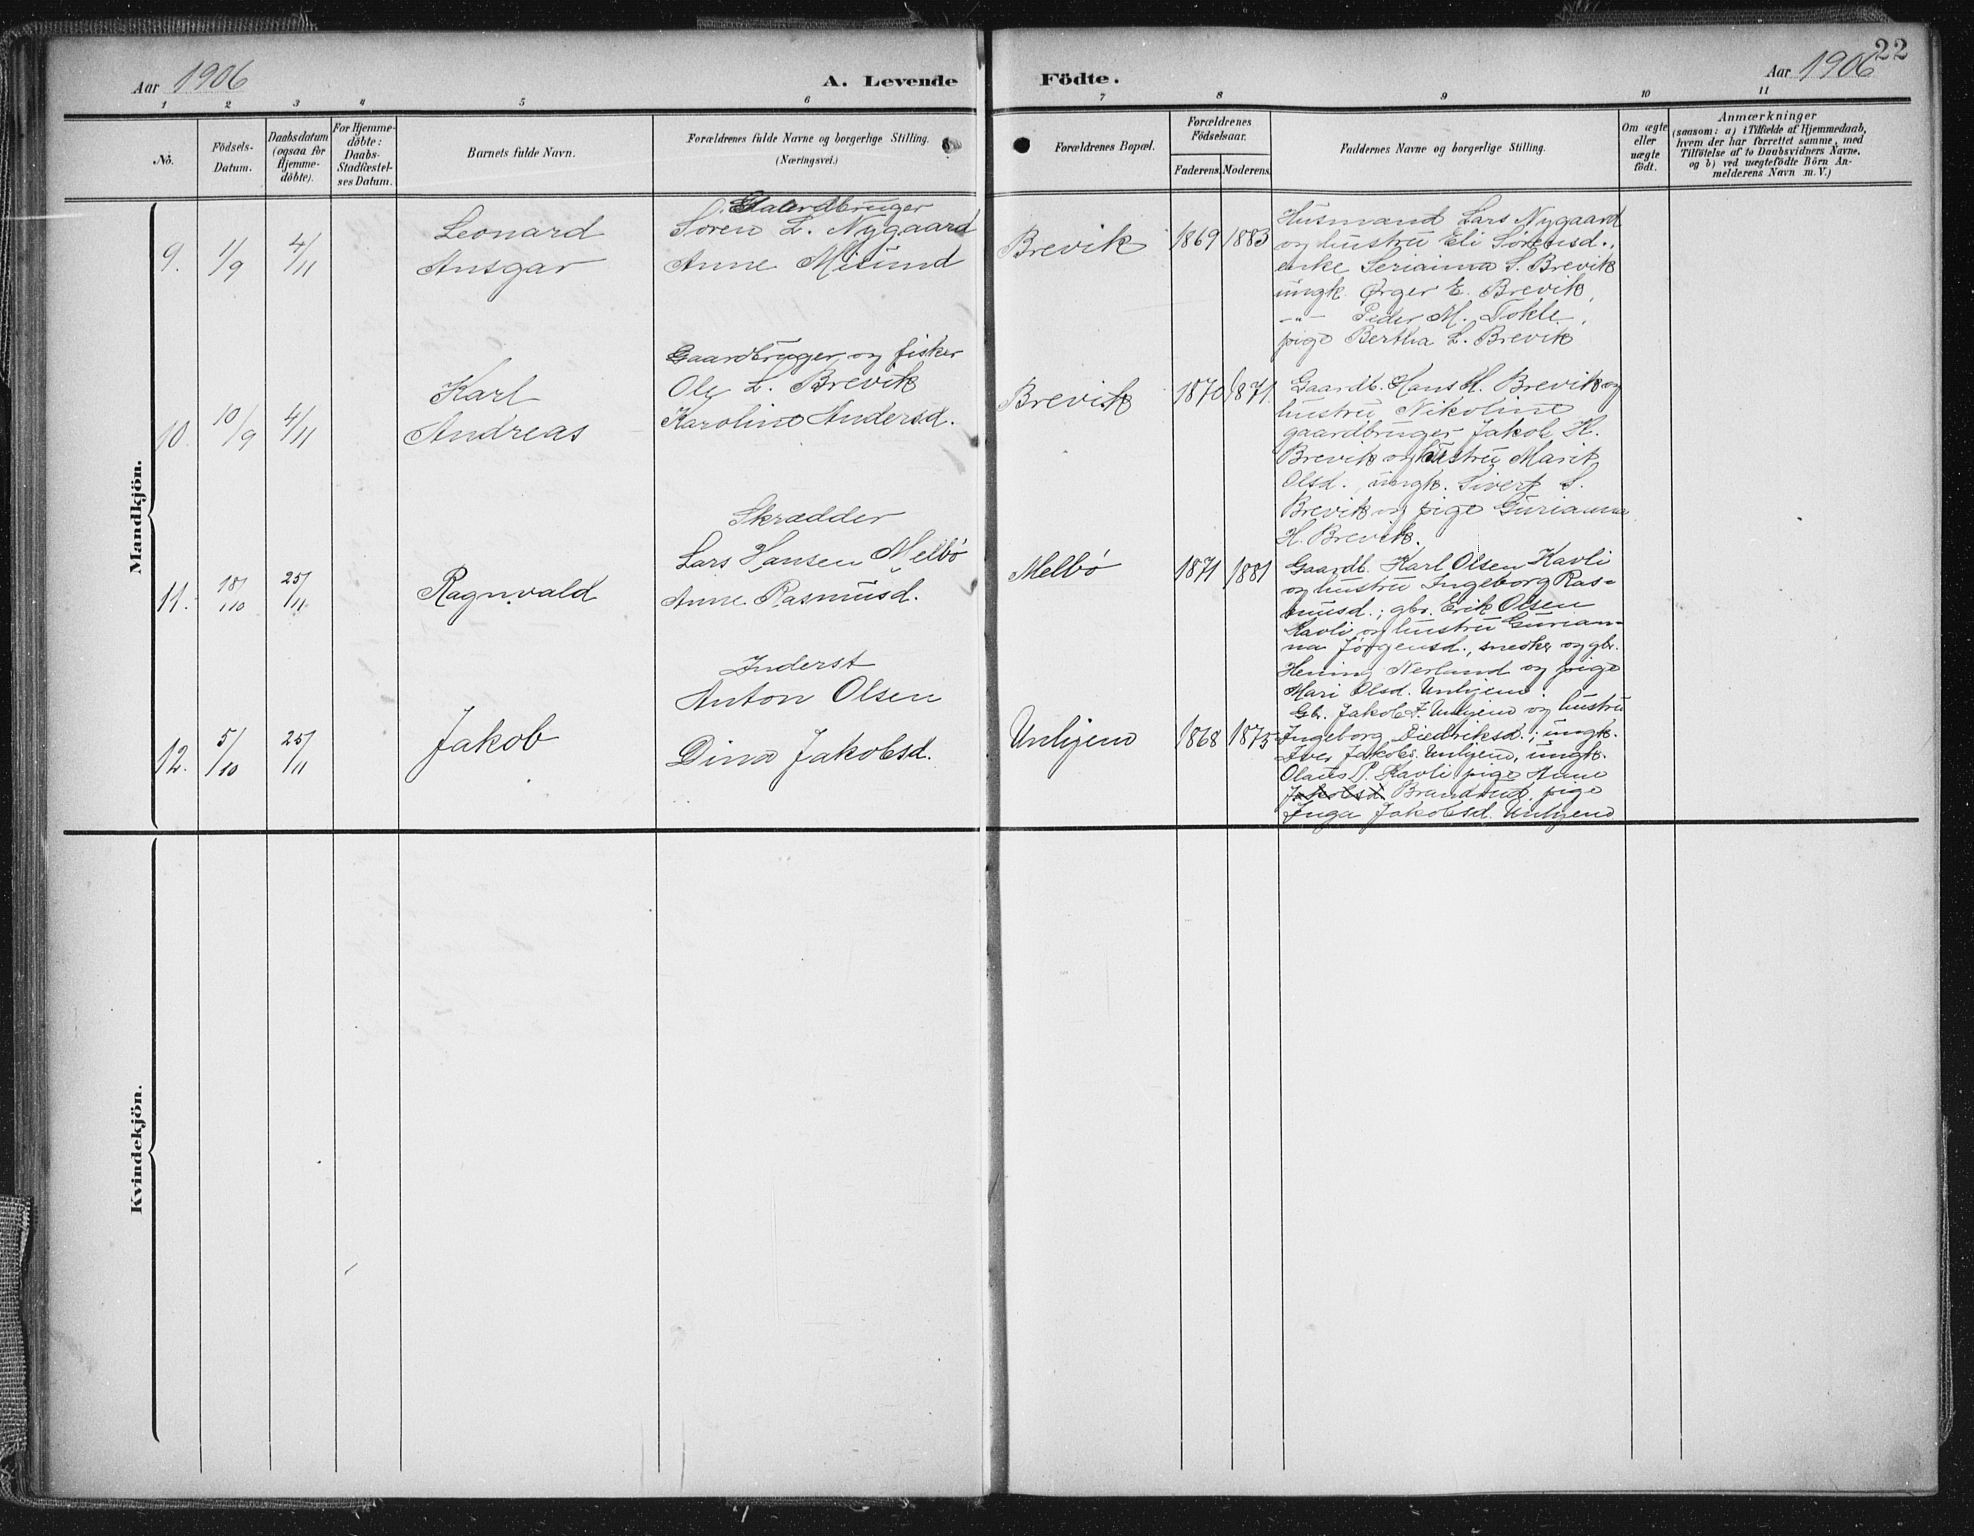 22
Aar 1906
A. Levende
Födte.
Aar 1906
1 2 3 4 5 6 7 8 9 10 11
No.
Födsels-
Datum.
Daabsdatum
(ogsaa for
Hjemme-
döbte).
For Hjemme-
döbte:
Daabs-
Stadfæstel-
ses Datum.
Barnets fulde Navn.
Forældrenes fulde Navne og borgerlige Stilling.
(Næringsvei.)
Forældrenes Bopæl.
Forældrenes
Födselsaar.
Faderens. Moderens.
Faddernes Navne og borgerlige Stilling.
Om ægte
eller
uægte
födt.
Anmærkninger
(saasom: a) i Tilfælde af Hjemmedaab,
hvem der har forrettet samme, med
Tilföielse af to Daabsvidners Navne,
og b) ved uægtefödte Börn An-
melderens Navn m. V.)
Mandkjön.
9.
1/9
4/11
Leonard
Ansgar
Gaardbruger
Søren L. Nygaard
Anne Misund
Brevik
1869 1883
Husmand Lars Nygaard
og hustru Eli Sørensd.,
enke Serianna S. Brevik
ungk. Ørger E. Brevik,
-"- Peder M. Tokle,
pige Bertha L. Brevik
10.
10/9
4/11
Karl
Andreas
Gaardbruger og fisker
Ole L. Brevik
Karoline Andersd.
Brevik
1870 1871
Gaardb. Hans H. Brevik og
hustru Nikoline
gaardbruger Jakob H.
Brevik og hustru Marit
Olsd., ungk. Sivert S.
Brevik og pige Gurianna
H. Brevik.
11.
18/10
25/11
Ragnvald
Skrædder
Lars Hansen Melbö
Anne Rasmusd.
Melbö
1871 1881
Gaardb. Karl Olsen Kavli
og hustru Ingeborg Ras-
musd.; gbr. Erik Olsen
Kavli og hustru Gurian-
na Jørgensd., snedker og gbr.
Hening Nerland og pige
Mari Olsd. Unhjem.
12.
5/10
25/11
Jakob
Inderst
Anton Olsen
Dina Jakobsd.
Unhjem
1868 1875
Gbr. Jakob I. Unhjem og hustru
Ingeborg Diedriksd.; ungk.
Iver Jakobs. Unhjem, ungk.
Olaus P. Kavli pige Anne
Jakobsd. pige
Inga Jakobsd. Unhjem
Kvindekjön.